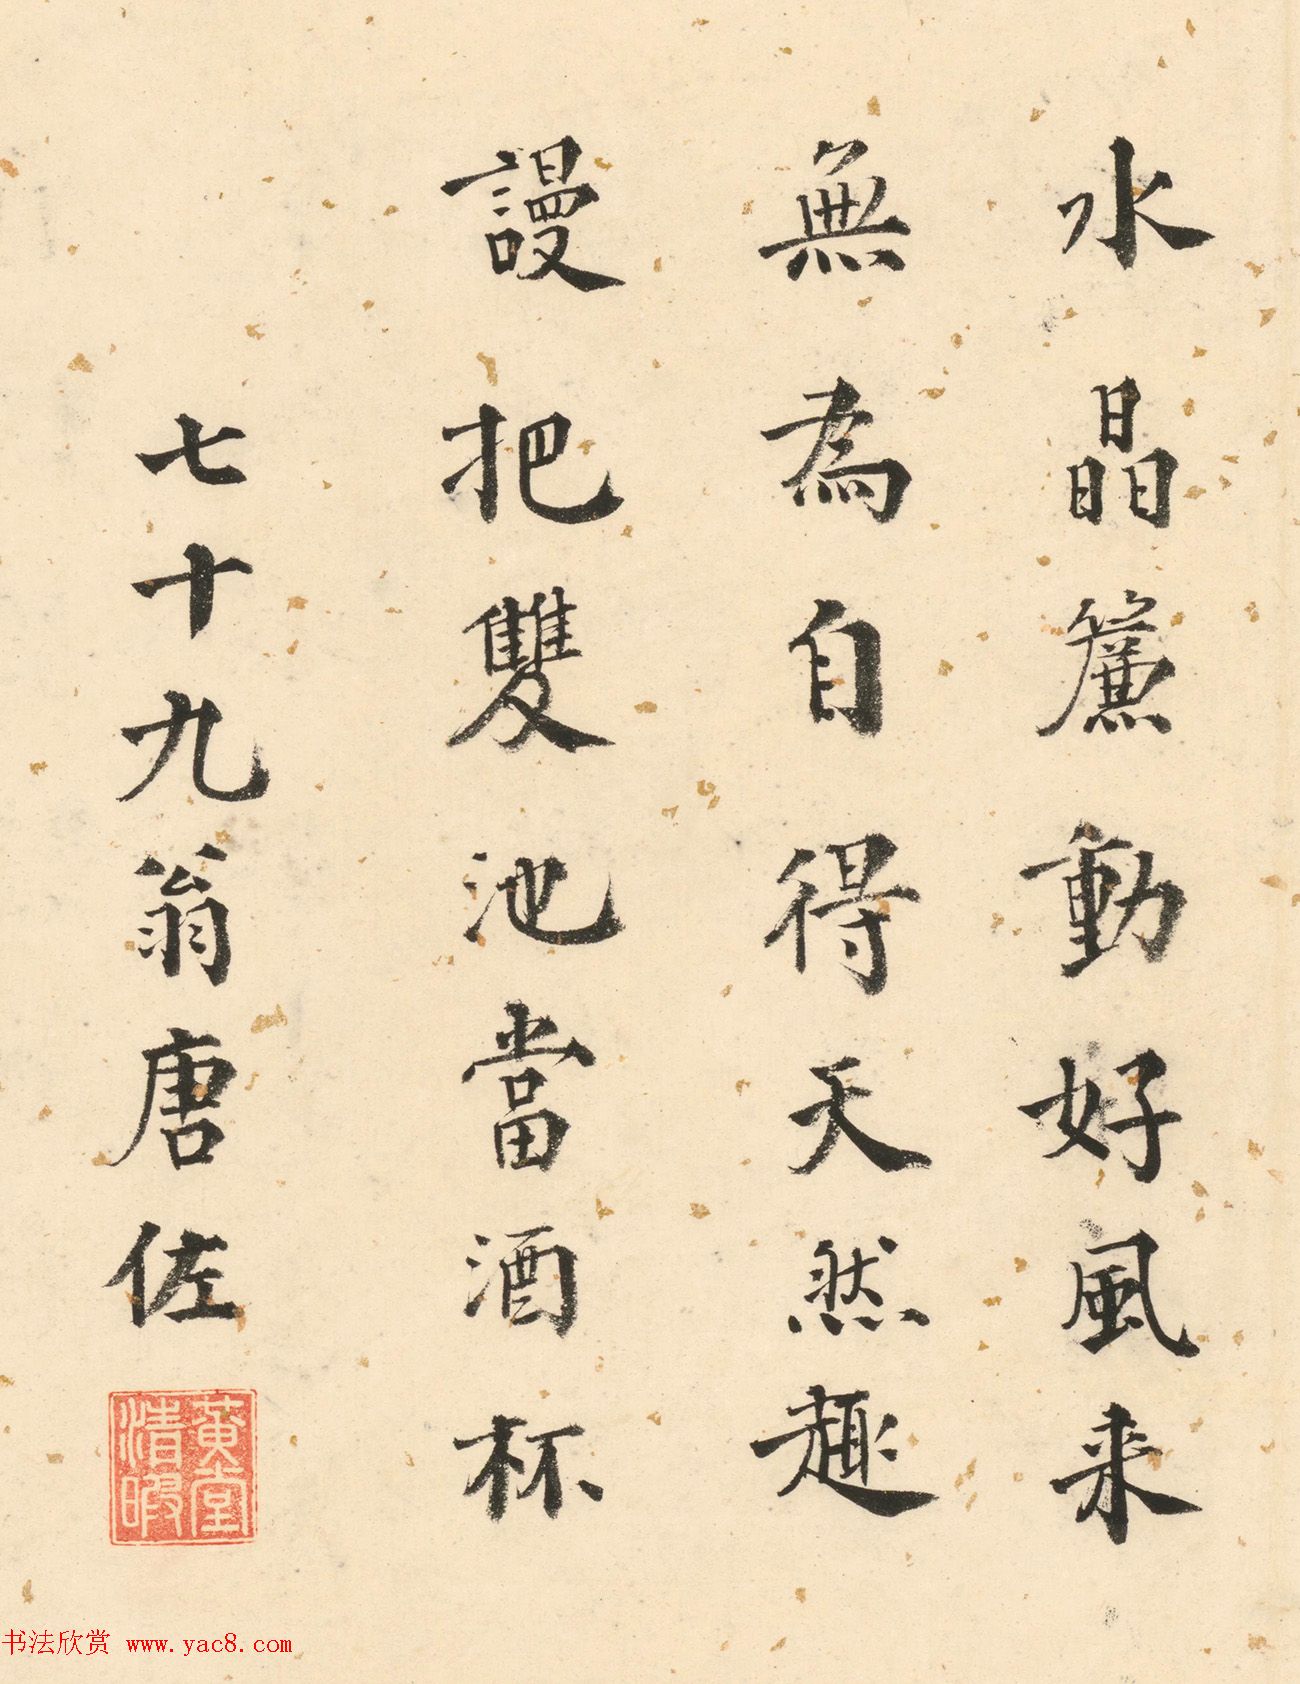 水晶簾動好風来
無為自得天然趣
謾把雙池當酒杯
七十九翁唐佐
黄堂清暇
书法欣赏 www.yac8.com